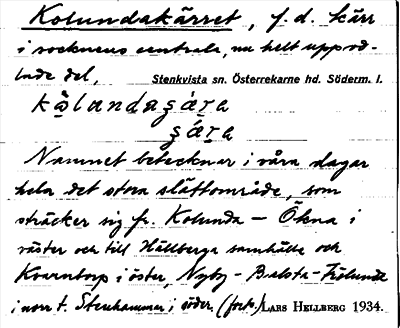 Kolundakärret, f.d. kärr
i socknens centrala, nu helt uppod-
lade del,
Stenkvista sn. Österrekarne hd. Söderm. l.
Namnet betecknar i våra dagar
hela det stora slättområde, som
sträcker sig fr. Kolunda – Ökna i
väster och till Hällberga samhälle och
Kvarntorp i öster, Nyby – Balsta –
i norr t. Stenhammar i söder. (forts.) LARS HELLBERG 1934.